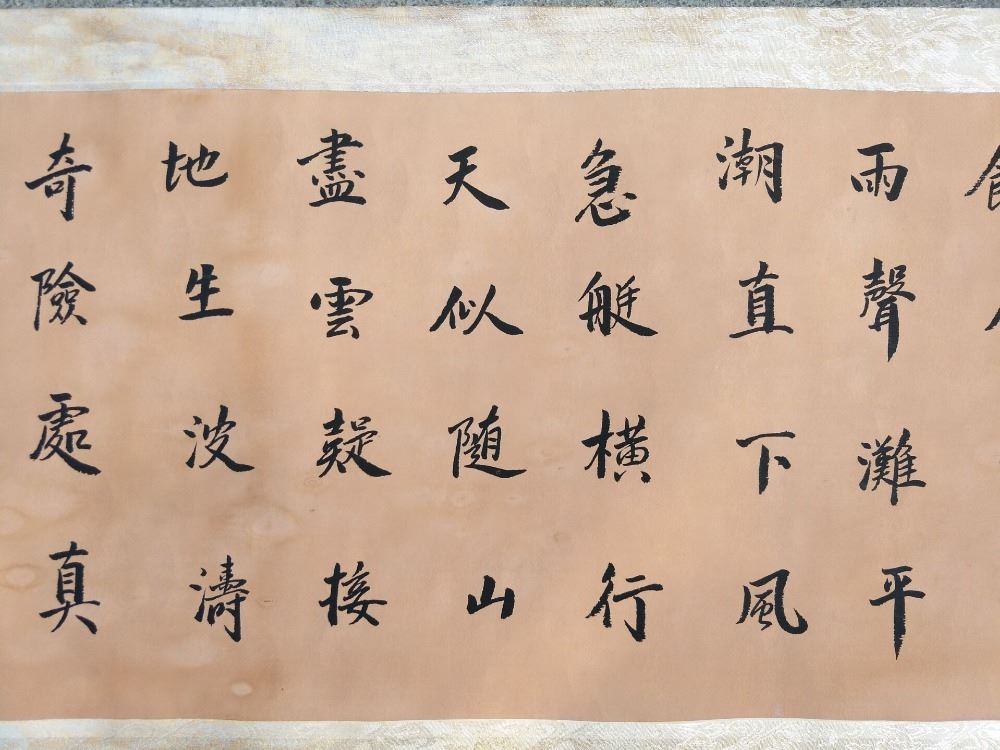 雨聲灘平
潮直下風
急艇橫行
天似隨山
盡雲疑接
地生波濤
奇險處真